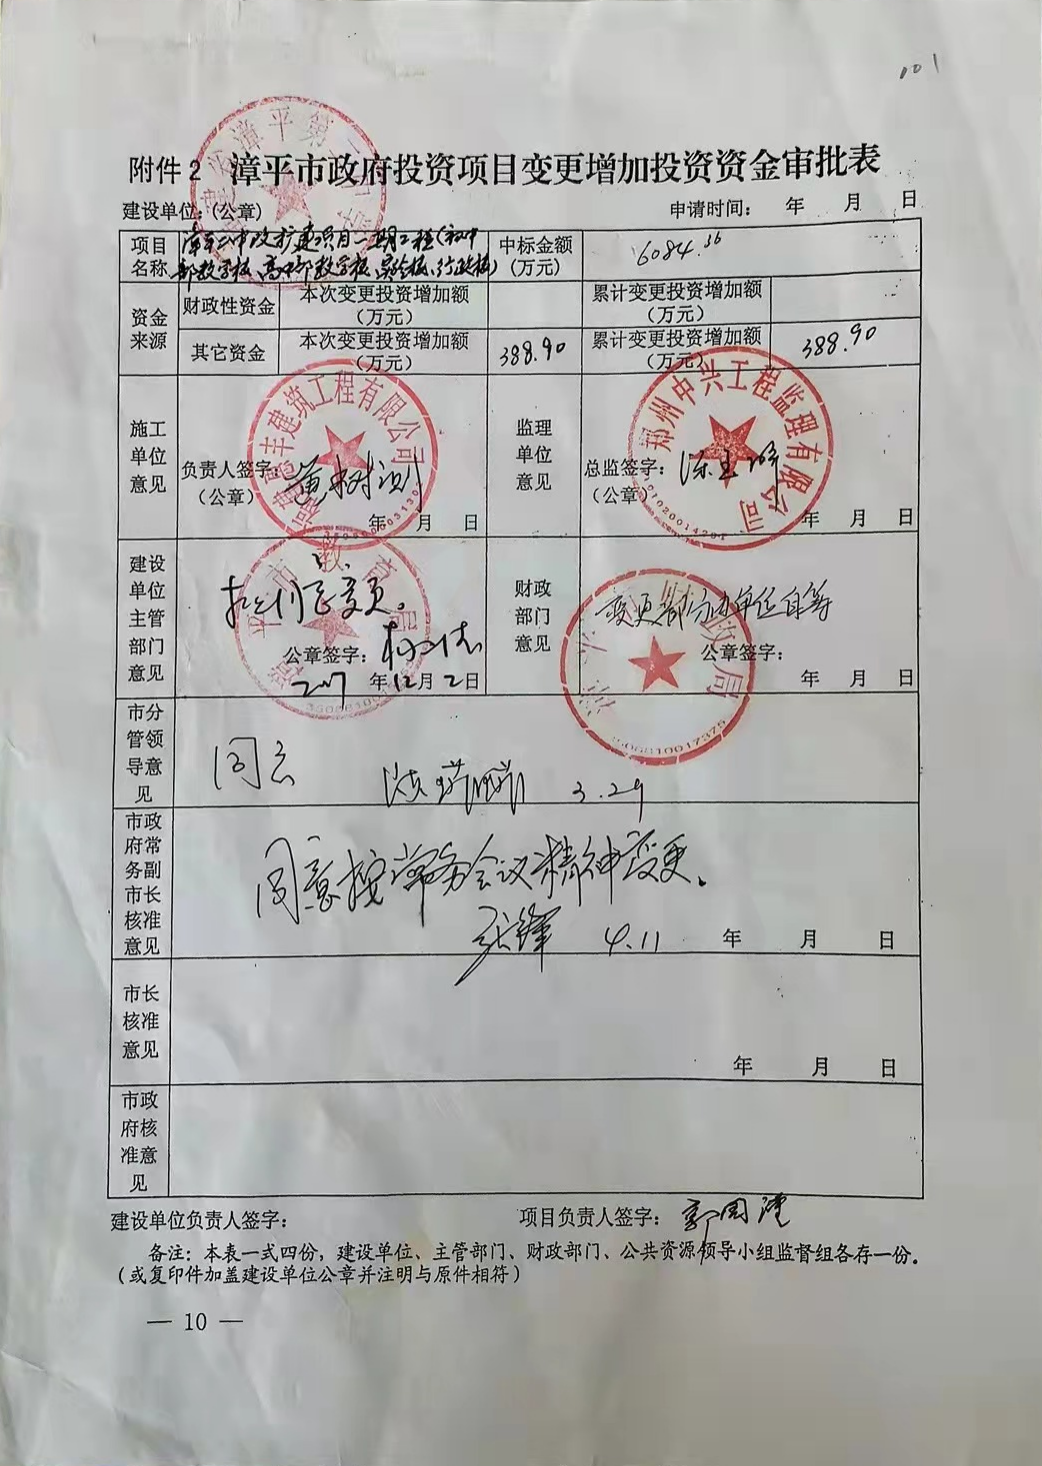 101
附件2 漳平市政府投资项目变更增加投资资金审批表
建设单位:(公章)
申请时间: 年 月 日
项目名称
漳平二中改扩建项目一期工程(初中
部教学楼、高中部教学楼、实验楼、行政楼)
中标金额(万元)
6084.36
资金来源
财政性资金
本次变更投资增加额(万元)
累计变更投资增加额(万元)
其它资金
本次变更投资增加额(万元)
388.90
累计变更投资增加额(万元)
388.90
施工单位意见
负责人签字:
(公章)
年 月 日
建筑工程有限公司
监理单位意见
总监签字:
(公章)
年 月 日
郑州中兴工程监理有限公司
建设单位主管部门意见
变更。
公章签字:
2017 年12月2日
财政部门意见
变更部分由单位自筹
公章签字:
年 月 日
市分管领导意见
同意
3.29
市政府常务副市长核准意见
同意按常务会议精神变更。
张锋 4.11 年 月 日
市长核准意见
年 月 日
市政府核准意见
建设单位负责人签字:
项目负责人签字:
备注:本表一式四份,建设单位、主管部门、财政部门、公共资源领导小组监督组各存一份。
(或复印件加盖建设单位公章并注明与原件相符)
— 10 —